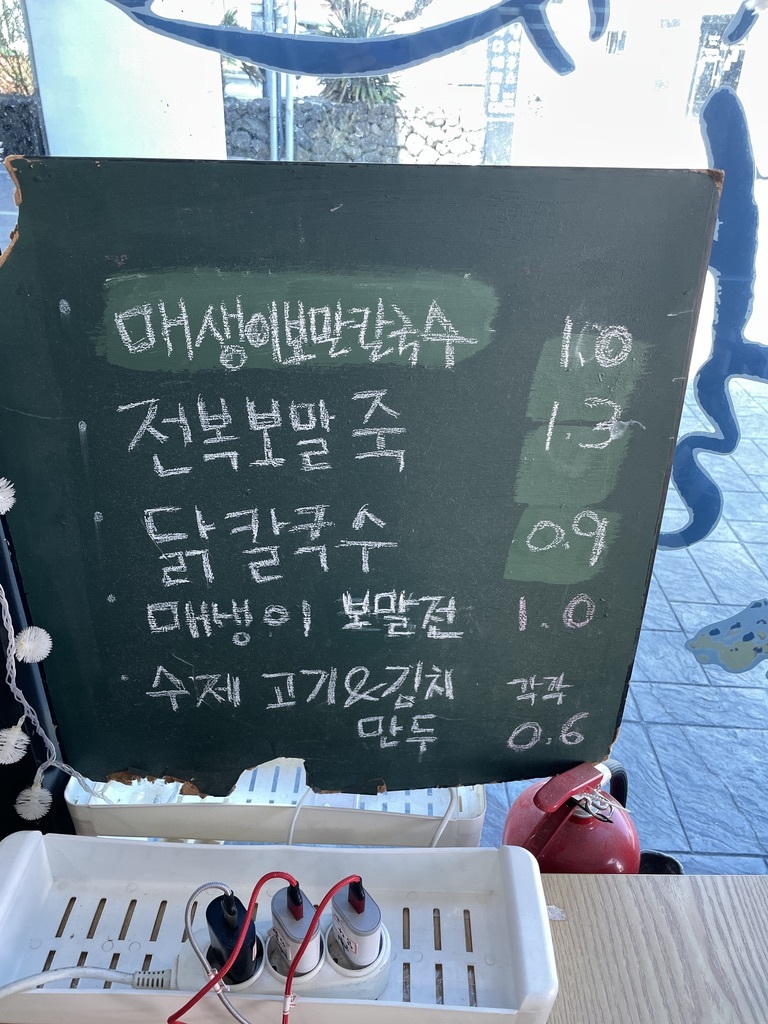 매생이보말칼국수 1.0
전복보말죽 1.3
닭칼국수 0.9
매생이 보말전 1.0
수제 고기&김치 각각
만두 0.6